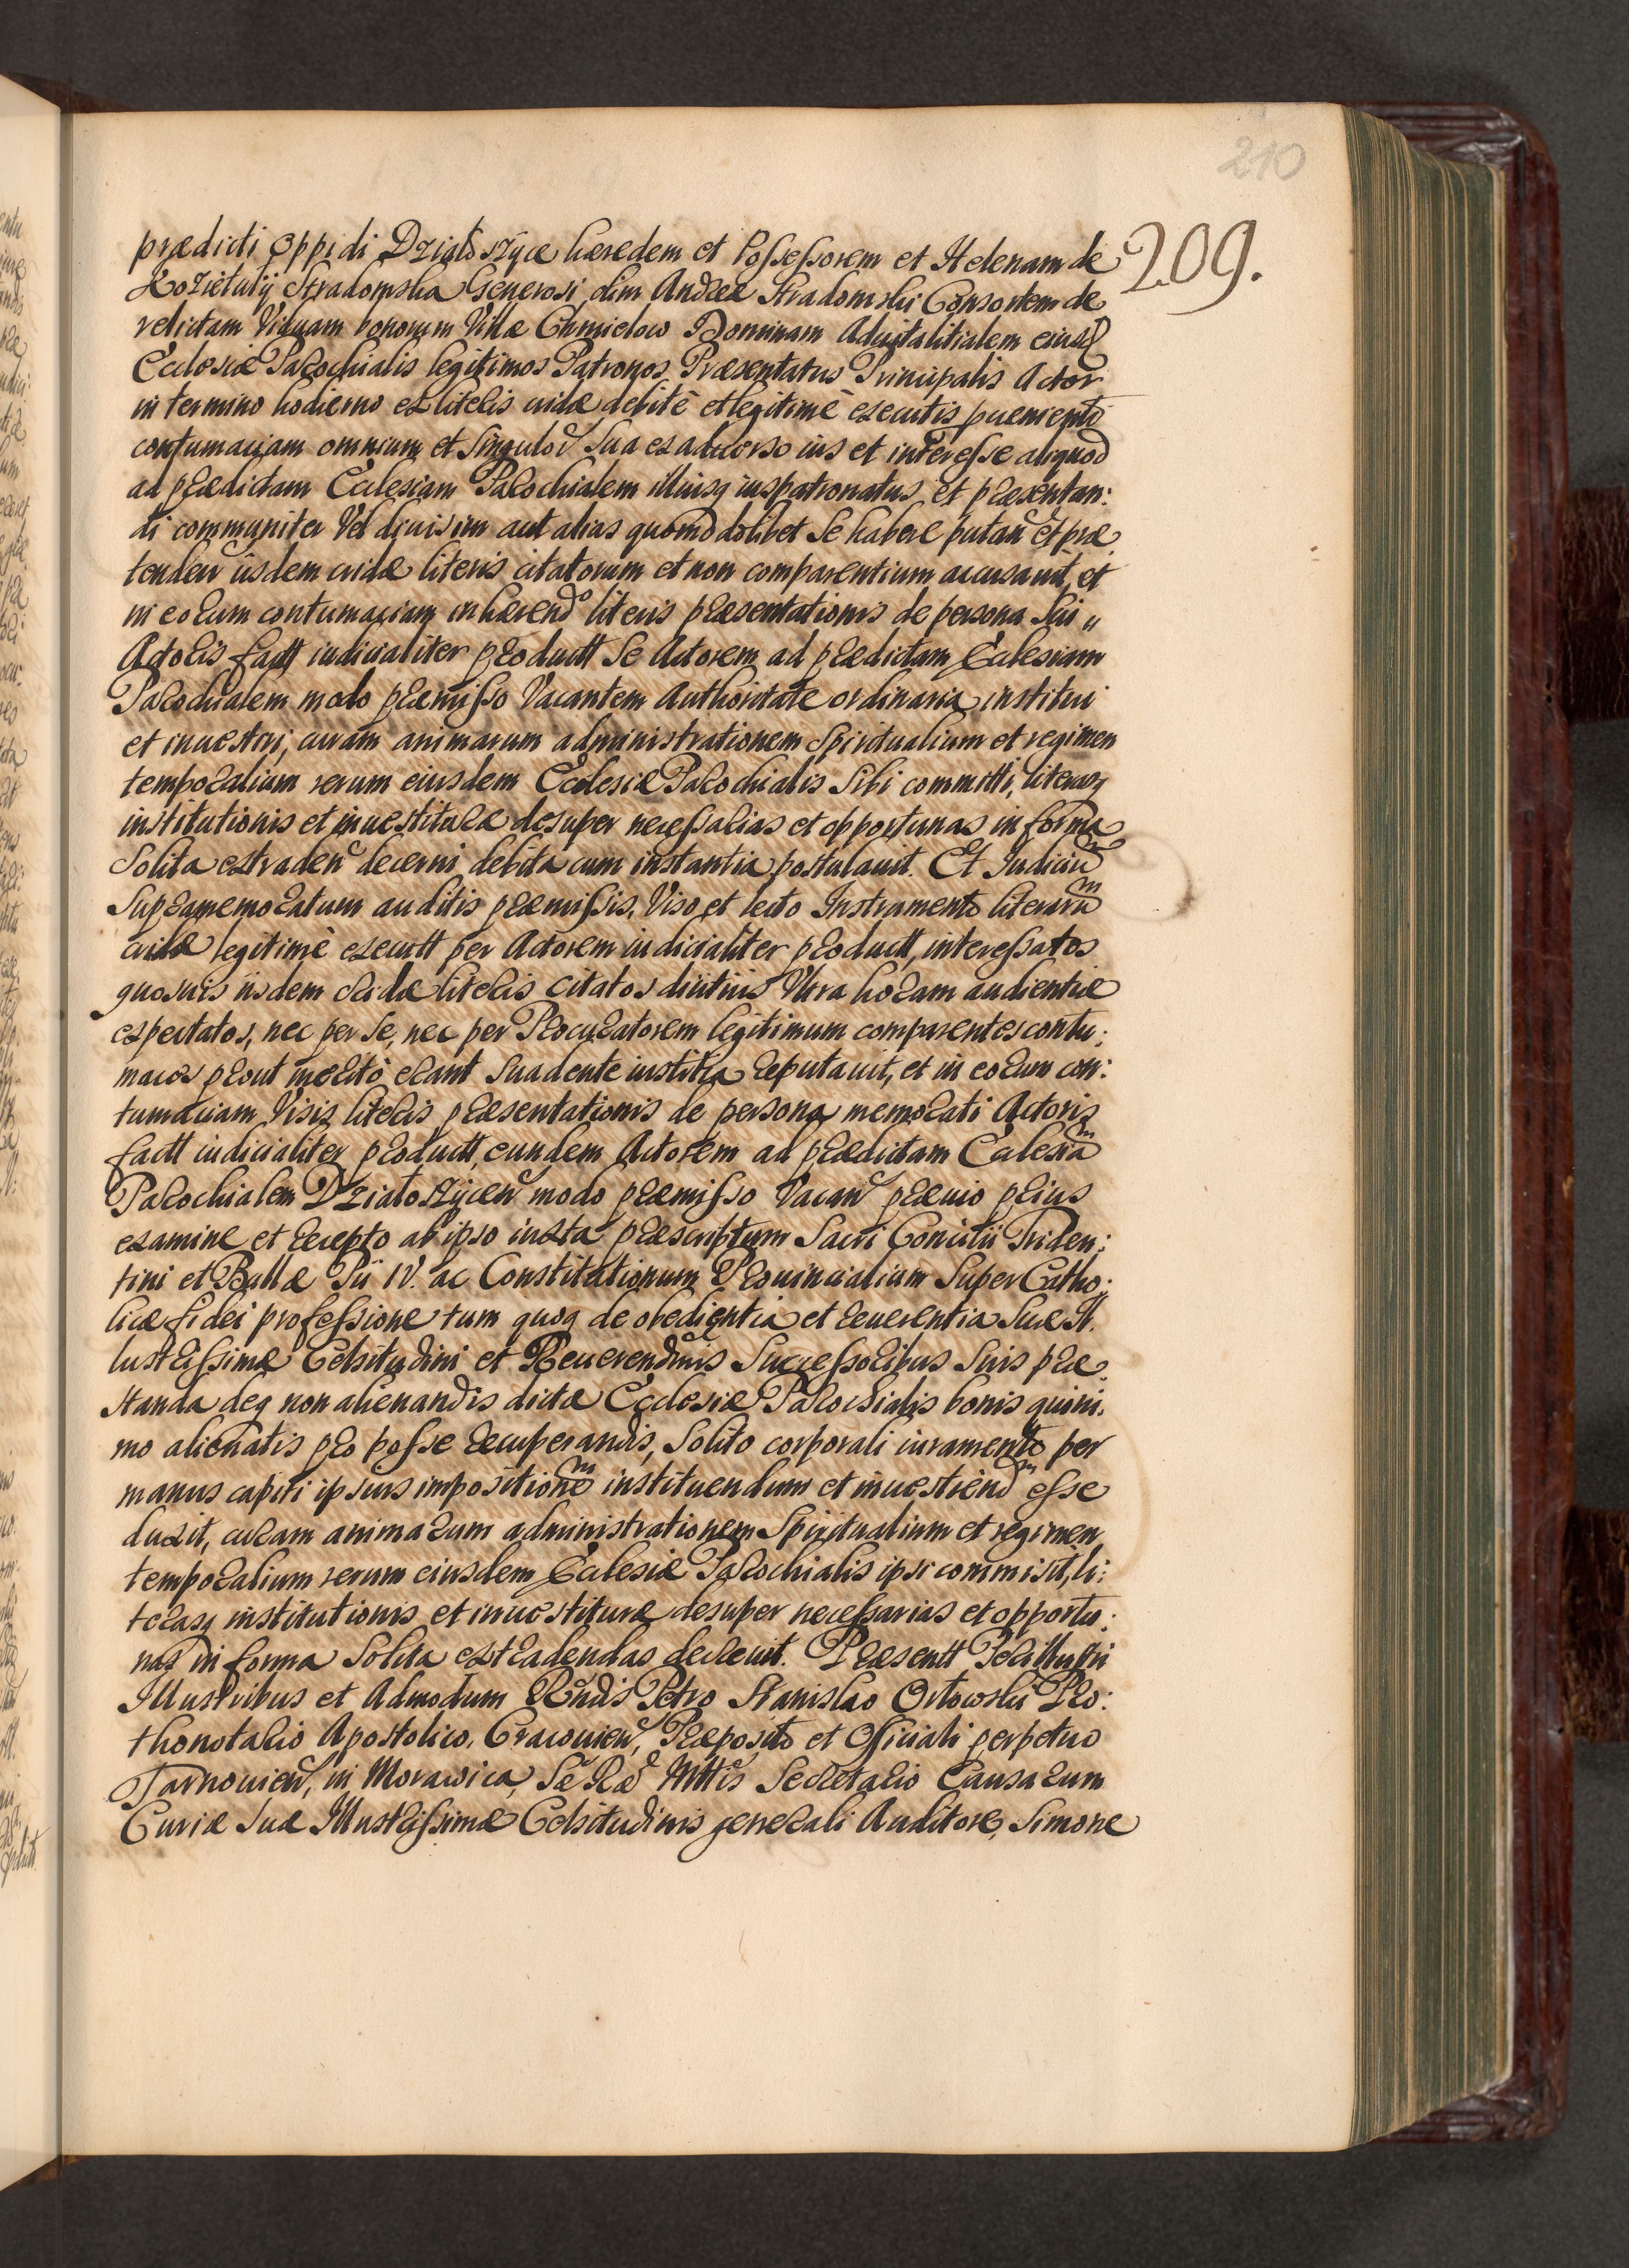 210
209.
prædicti Oppidi Działoszyce hæredem et Possessorem et Helenam de
Kozietuły Stradomska Generosi olim Andreæ Stradomski Consortem de
relictam Viduam bonorum Villæ Chmielow Dominam Aduitalitialem eiusd
Ecclesiæ Parochialis legitimos Patronos Præsentatus Principalis Actor
in termino hodierno ex literis cridæ debitè et legitimè executis
contumaciam omnium et Singulor sua ex aduerso ius et interesse aliquod
ad prædictam Ecclesiam Parochialem illiusq iuspatronatus et præsentan:
di communiter Vel diuisim aut alias quomodolibet Se habere putan et præ
tenden iisdem cridæ literis citatorum et non comparentium accusauit, et
in eorum contumaciam inhærendo literis præsentationis de persona Sui
Actoris fact iudicialiter product Se Actorem ad prædictam Ecclesiam
Parochialem modo præmisso Vacantem Authoritate ordinaria institui
et inuestiri, curam animarum administrationem Spiritualium et regimen
temporalium rerum eiusdem Ecclesiæ Parochialis Sibi committi, literasq
institutionis et inuestituræ desuper necessarias et opportunas in forma
Solita extraden decerni debita cum instantia postulauit. Et Iudiciu
Supramemoratum auditis præmissis, Viso et lecto Instrumento literaru
cridæ legitimè execut per Actorem iudicialiter product, interessatos
quosuis iisdem cridæ literis citatos diutiùs Vltra horam audientiæ
expectatos, nec per Se, nec per Procuratorem legitimum comparentes contu:
maces prout meritò erant Suadente iustitia reputauit, et in eorum con:
tumaciam Visis literis præsentationis de persona memorati Actoris
fact iudicialiter product, eundem Actorem ad prædictam Ecclesia
Parochialem Działoszycen modo præmisso Vacan præuio prius
examine et recepto ab ipso iuxta præscriptum Sacri Concilii Triden:
tini et Bullæ Pii IV. ac Constitutionum Prouincialium Super Catho:
licæ fidei professione tum quoq de obedientia et reuerentia Suæ Il.
lustrissimæ Celsitudini et Reuerendmis Successoribus Suis præ.
standa deq non alienandis dictæ Ecclesiæ Parochialis bonis quini.
mo alienatis pro posse recuperandis, Solito corporali iuramento per
manus capiti ipsius impositione instituendum et inuestiend esse
duxit, curam animarum administrationem Spiritualium et regimen
temporalium rerum eiusdem Ecclesiæ Parochialis ipsi commisit, li:
terasq institutionis et inuestituræ desuper necessarias et opportu:
nas in forma Solita extradendas decreuit. Præsent Perillustri
Illustribus et Admodum Rndis Petro Stanislao Orłowski Pro:
thonotario Apostolico, Cracouien, Præposito et Officiali perpetuo
Tarnouien, in Morawica, Sæ Ræ Mttis Secretario Causarum
Curiæ Suæ Illustrissimæ Celsitudinis generali Auditore, Simone